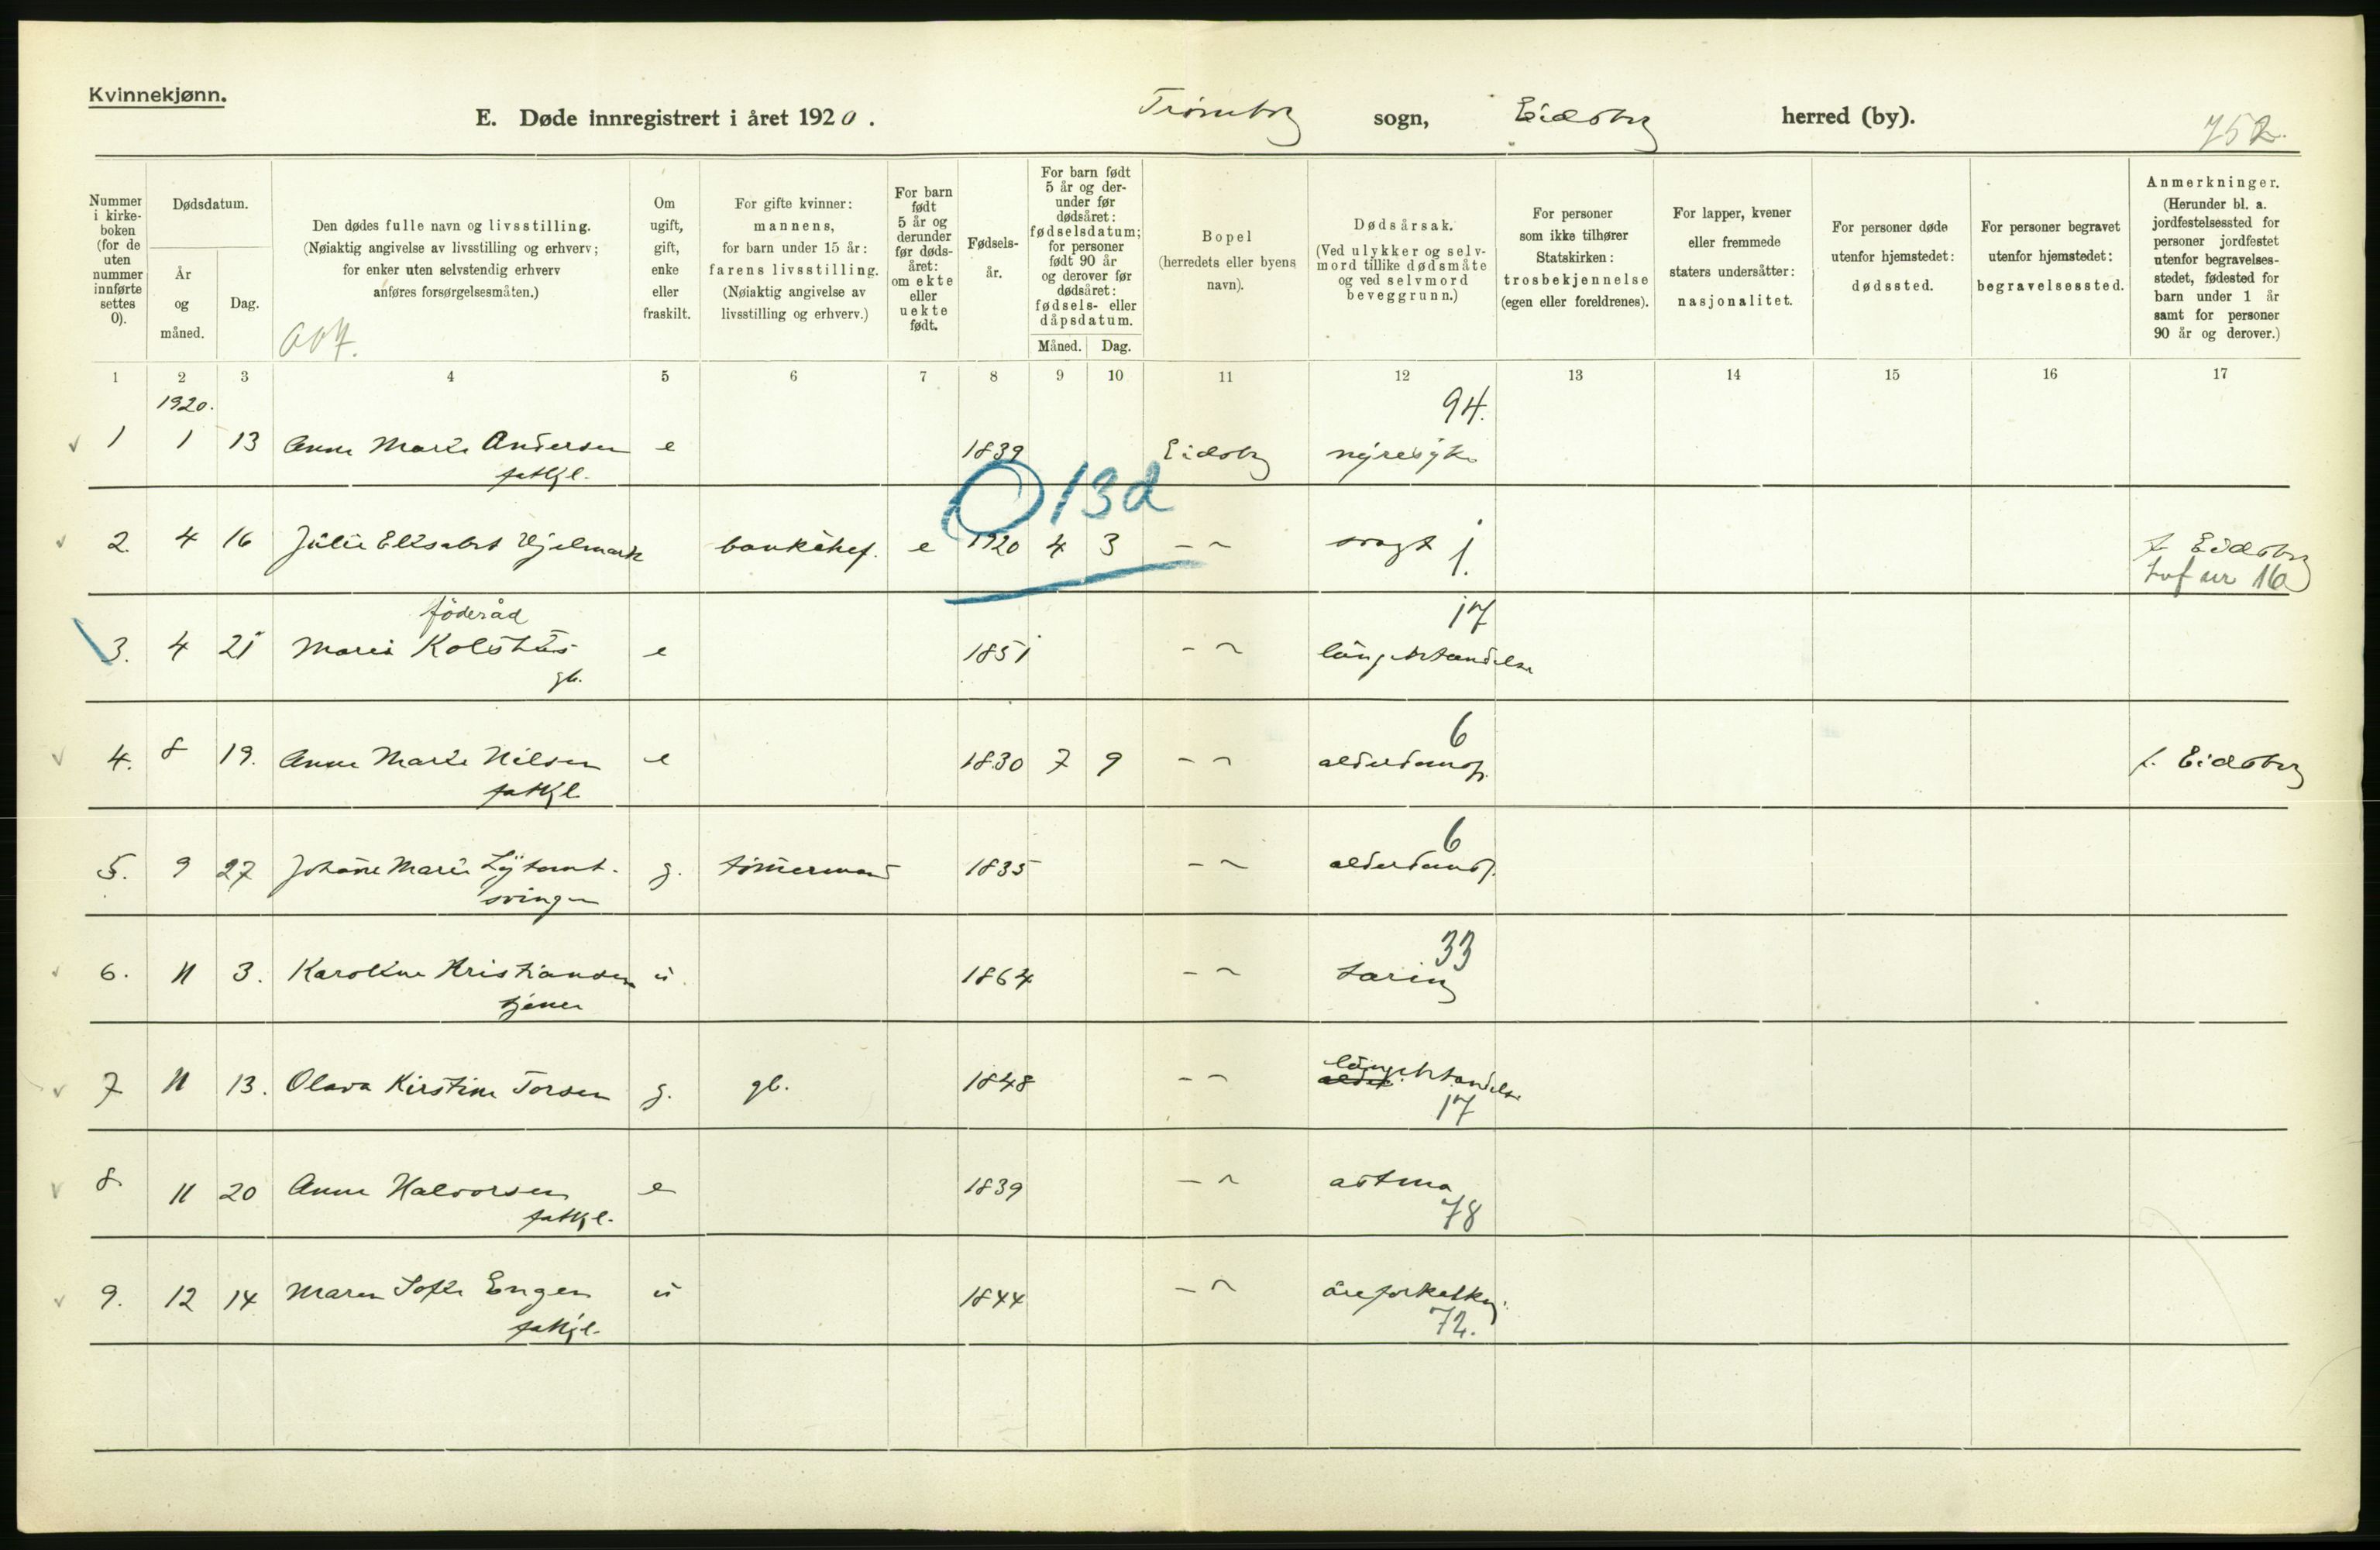 Kvinnekjønn.
E. Døde innregistrert i året 1920. Trømborg sogn, Eidsberg herred (by). 752.
Nummer i kirke-boken (for de uten nummer innførte settes 0).
Dødsdatum.
År og måned.
Dag.
Den dødes fulle navn og livsstilling.
(Nøiaktig angivelse av livsstilling og erhverv;
for enker uten selvstendig erhverv
anføres forsørgelsesmåten.)
Om ugift, gift, enke eller fraskilt.
For gifte kvinner:
mannens,
for barn under 15 år:
farens livsstilling.
(Nøiaktig angivelse av
livsstilling og erhverv.)
For barn født 5 år og derunder før døds-året: om ekte eller uekte født.
Fødsels-år.
For barn født 5 år og der-under før dødsåret: fødselsdatum; for personer født 90 år og derover før dødsåret: fødsels- eller dåpsdatum.
Måned. Dag.
Bopel
(herredets eller byens
navn).
Dødsårsak.
(Ved ulykker og selv-
mord tillike dødsmåte
og ved selvmord
beveggrunn.)
For personer
som ikke tilhører
Statskirken:
trosbekjennelse
(egen eller foreldrenes).
For lapper, kvener
eller fremmede
staters undersåtter:
nasjonalitet.
For personer døde
utenfor hjemstedet:
dødssted.
For personer begravet
utenfor hjemstedet:
begravelsessted.
Anmerkninger.
(Herunder bl. a.
jordfestelsessted for
personer jordfestet
utenfor begravelses-
stedet, fødested for
barn under 1 år
samt for personer
90 år og derover.)
1 2 3 4 5 6 7 8 9 10 11 12 13 14 15 16 17
1920. 94.
1 1 13 Anne Marie Andersen e 1839 Eidsberg nyresyke
fattigl.
O 13d
2. 4 16 Julie Elisabet Hjelmark bankchef. e 1920 4 3 — ~ svagt 1. f. Eidsberg
tvf nr 16
føderåd 17
3. 4 21 Maria Kolshus e 1851 — ~ lungebetændelse
gb.
6
4. 8 19. Anne Marie Nilsen e 1830 7 9 — ~ alderdomsp. f. Eidsberg
fattigl
6
5. 9 27 Johanne Marie Lytomt- g. tømermand 1835 — ~ alderdomsp.
svingen
33
6. 11 3. Karoline Kristiansen u. 1864 — ~ tæring
tjener
7 11 13. Olava Kirstine Torsen g. gb. 1848 — ~ lungebetændelse
17
8. 11 20 Anne Halvorsen e 1839 — ~ astma
fattigl. 78
9. 12 14 Maren Sofie Engen u 1844 — ~ åreforkalkn.
fattigl. 72.